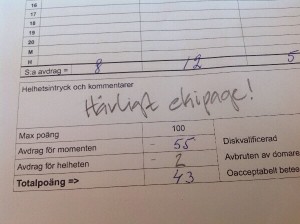 16
17
18
19
20
M
H
S:a avdrag = 8 12 5
Helhetsintryck och kommentarer
Härligt ekipage!
Max poäng 100
Avdrag för momenten - 55 Diskvalificerad
Avdrag för helheten - 2 Avbruten av domare
Totalpoäng => 43 Oacceptabelt betee